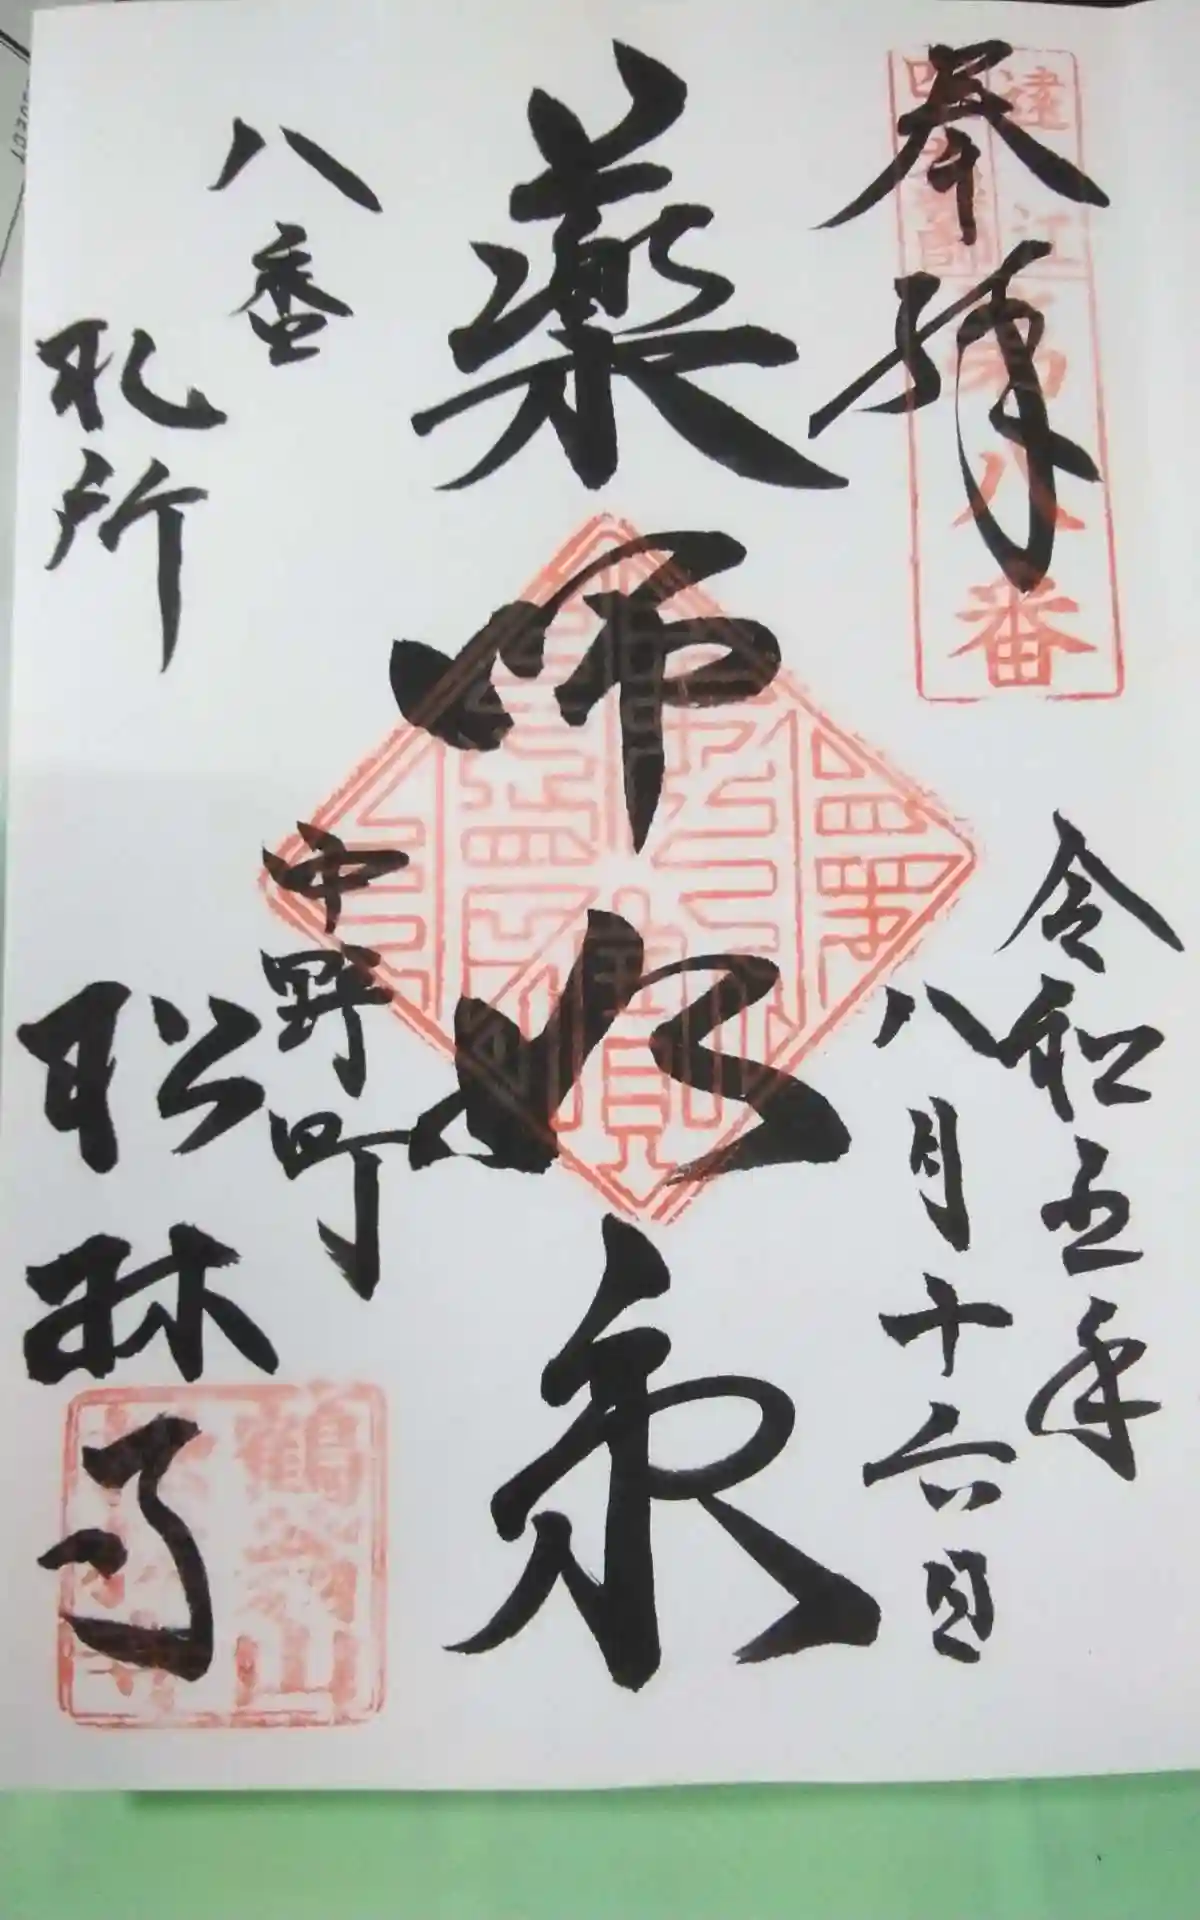 奉拝
遠江
第八番
令和五年
八月十六日
薬師如来
八番
札所
中野町
松林寺
鶴翁山
松林寺